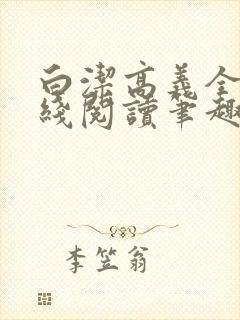 白潔高義全
綫閱讀筆趣
李笠翁